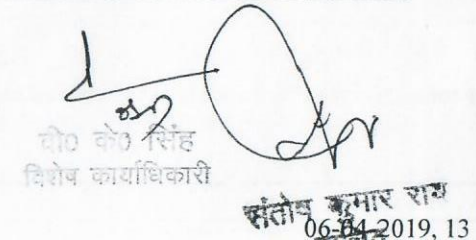 वी0 के0 सिंह
विशेष कार्याधिकारी
संतोष कुमार राय
06-04-2019, 13